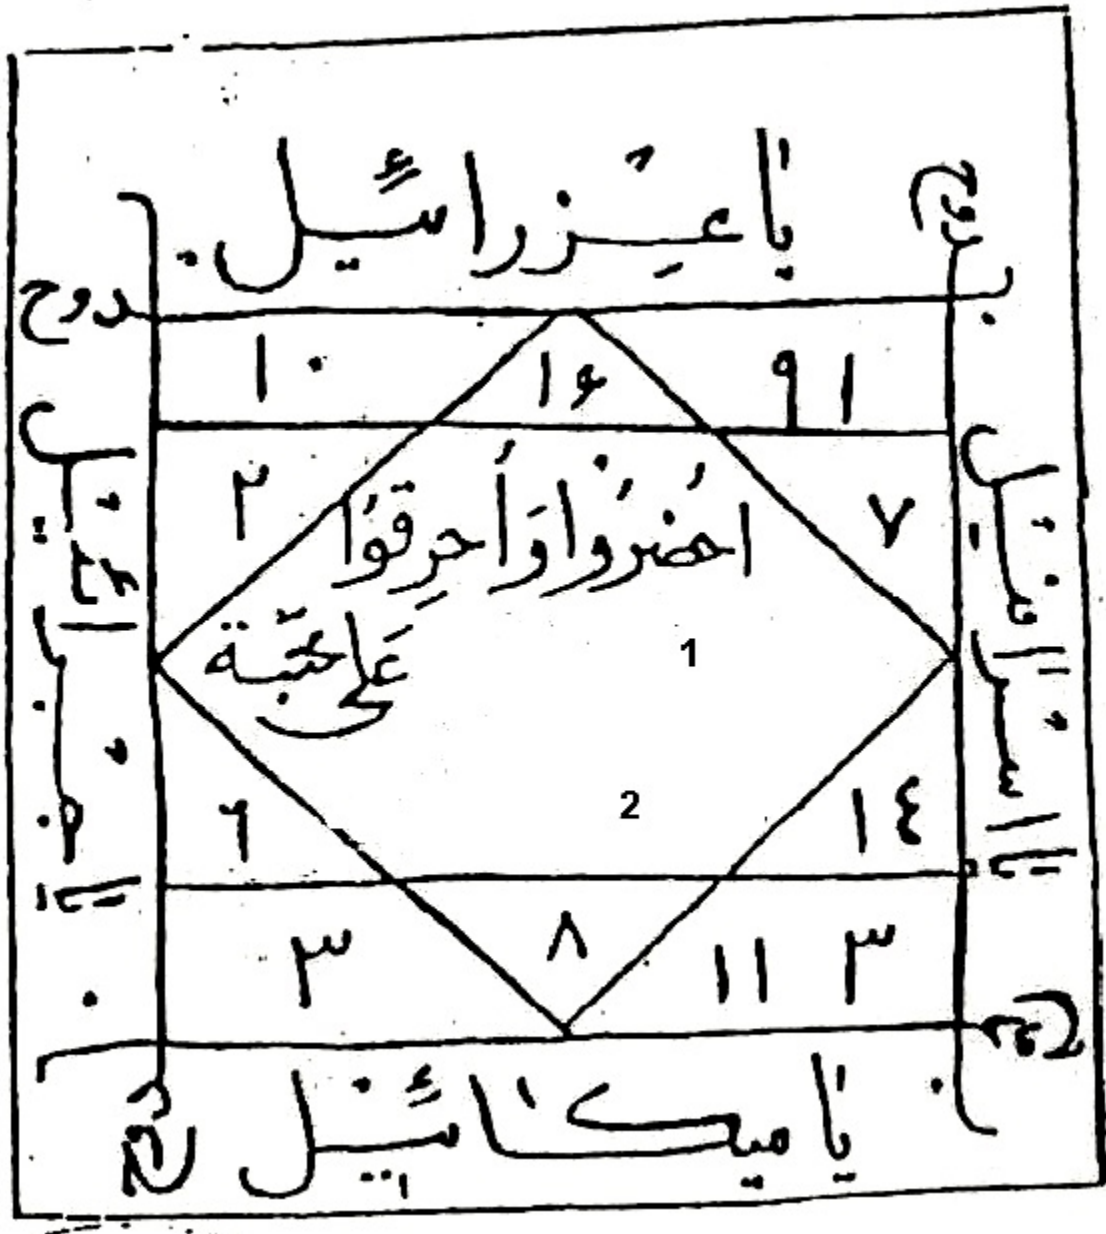 يا عزرائيل
بدوح
بدوح
١٠ ١٤ ٩١
٢ ٧
اُحضرُوا وَأَحرِقوُا
عَلى محَبّة
1
2
٦ ١٤
٣ ٨ ١١ ٣
يا جبرائيل
يا اسرافيل
بدوح
يا ميكائيل بدوح